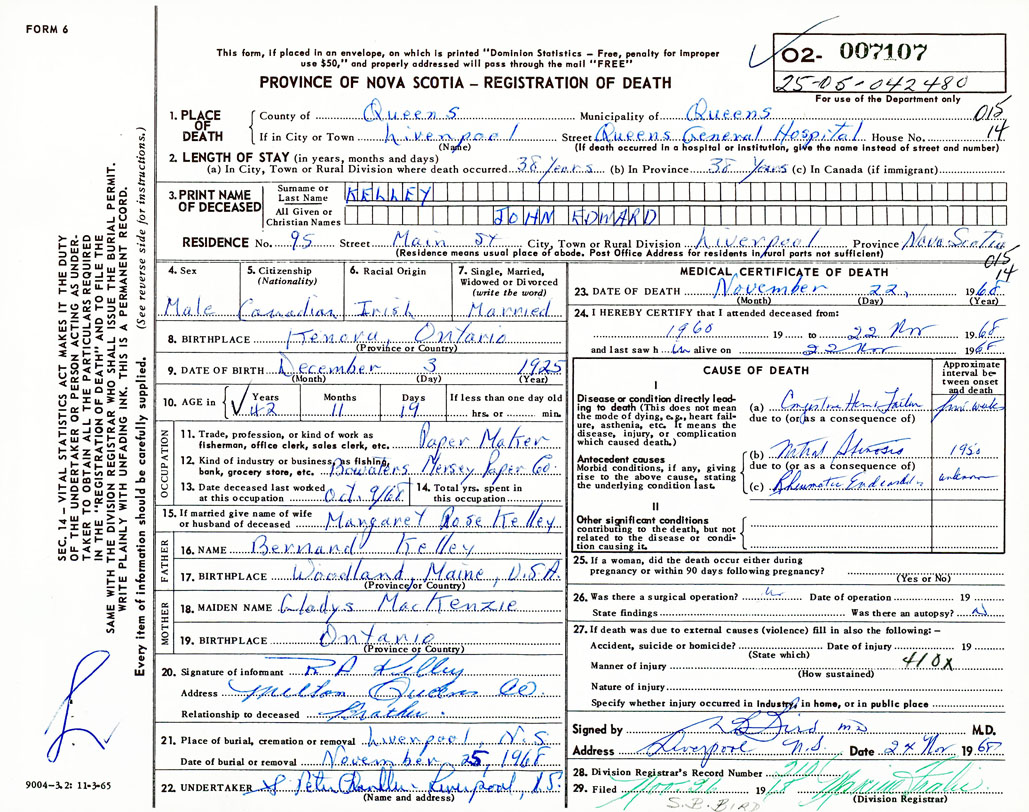 FORM 6
This form, if placed in an envelope, on which is printed "Dominion Statistics – Free, penalty for improper
use $50," and properly addressed will pass through the mail "FREE"
PROVINCE OF NOVA SCOTIA – REGISTRATION OF DEATH
02- 007107
25-05-042480
For use of the Department only
1. PLACE OF DEATH
County of Queens Municipality of Queens 015
If in City or Town Liverpool Street Queens General Hospital House No. 14
(Name) (If death occurred in a hospital or institution, give the name instead of street and number)
2. LENGTH OF STAY (in years, months and days)
(a) In City, Town or Rural Division where death occurred 38 Years (b) In Province 38 Years (c) In Canada (if immigrant)
3. PRINT NAME OF DECEASED
Surname or Last Name KELLEY
All Given or Christian Names JOHN EDWARD
RESIDENCE No. 95 Street Main St City, Town or Rural Division Liverpool Province Nova Scotia
(Residence means usual place of abode. Post Office Address for residents in rural parts not sufficient)
015
14
4. Sex
Male
5. Citizenship (Nationality)
Canadian
6. Racial Origin
Irish
7. Single, Married, Widowed or Divorced (write the word)
Married
8. BIRTHPLACE Kenora, Ontario
(Province or Country)
9. DATE OF BIRTH December 3 1925
(Month) (Day) (Year)
10. AGE in
Years Months Days If less than one day old
42 11 19 hrs. or min.
OCCUPATION
11. Trade, profession, or kind of work as fisherman, office clerk, sales clerk, etc. Paper Maker
12. Kind of industry or business, as fishing, bank, grocery store, etc. Bowaters Mersey Paper Co.
13. Date deceased last worked at this occupation Oct. 9/68
14. Total yrs. spent in this occupation
15. If married give name of wife or husband of deceased Margaret Rose Kelley
FATHER
16. NAME Bernard Kelley
17. BIRTHPLACE Woodland, Maine, U.S.A.
(Province or Country)
MOTHER
18. MAIDEN NAME Gladys MacKenzie
19. BIRTHPLACE Ontario
(Province or Country)
20. Signature of informant R A Kelley
Address Milton Queens Co.
Relationship to deceased Brother.
21. Place of burial, cremation or removal Liverpool N.S.
Date of burial or removal November 25, 1968
22. UNDERTAKER Chandler Liverpool, N.S.
(Name and address)
MEDICAL CERTIFICATE OF DEATH
23. DATE OF DEATH November 22, 1968
(Month) (Day) (Year)
24. I HEREBY CERTIFY that I attended deceased from:
1960 19 to 22 Nov 1968
and last saw him alive on 22 Nov 1968
CAUSE OF DEATH
Approximate interval between onset and death
I
Disease or condition directly leading to death (This does not mean the mode of dying, e.g., heart failure, asthenia, etc. It means the disease, injury, or complication which caused death.)
(a) Congestive Heart Failure
due to (or as a consequence of)
Antecedent causes
Morbid conditions, if any, giving rise to the above cause, stating the underlying condition last.
(b) Mitral Stenosis 1950
due to (or as a consequence of)
(c) Rheumatic Endocarditis unknown
II
Other significant conditions contributing to the death, but not related to the disease or condition causing it.
25. If a woman, did the death occur either during pregnancy or within 90 days following pregnancy?
(Yes or No)
26. Was there a surgical operation? Date of operation 19
State findings Was there an autopsy?
27. If death was due to external causes (violence) fill in also the following: –
Accident, suicide or homicide? Date of injury 19
(State which)
410X
Manner of injury
(How sustained)
Nature of injury
Specify whether injury occurred in industry, in home, or in public place
Signed by Bird MD M.D.
Address Liverpool N.S. Date 24 Nov 1968
28. Division Registrar's Record Number
29. Filed Nov. 26 1968
(Division Registrar)
S.B. BIRD
SEC. 14 – VITAL STATISTICS ACT MAKES IT THE DUTY
OF THE UNDERTAKER OR PERSON ACTING AS UNDER-
TAKER TO OBTAIN ALL THE PARTICULARS REQUIRED
IN THE "REGISTRATION OF DEATH" AND TO FILE THE
SAME WITH THE DIVISION REGISTRAR WHO SHALL ISSUE THE BURIAL PERMIT.
WRITE PLAINLY WITH UNFADING INK. THIS IS A PERMANENT RECORD.
Every item of information should be carefully supplied. (See reverse side for instructions.)
9004-3.2: 11-3-65